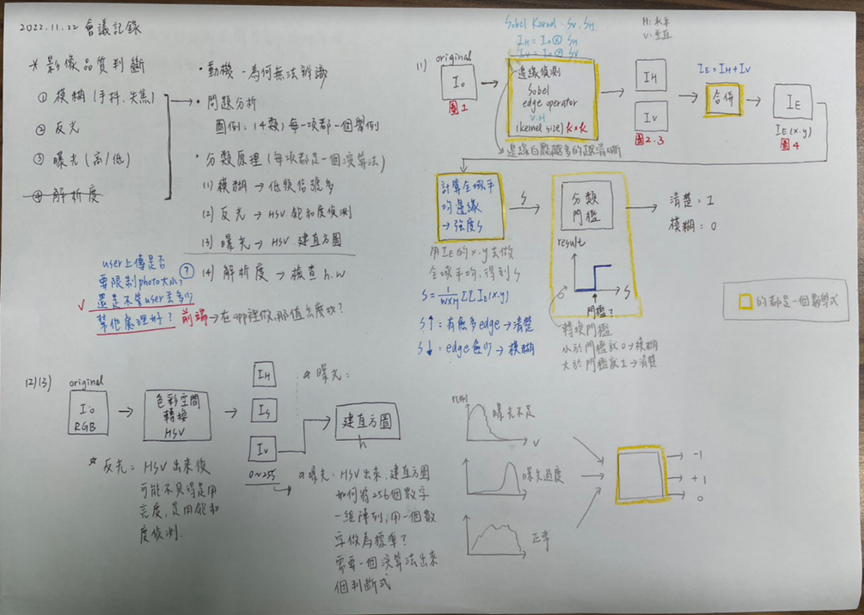 2022.11.22 會議記錄
* 影像品質判斷
① 模糊 (手抖、失焦)
② 反光
③ 曝光 (高/低)
④ 解析度
• 動機 - 為何無法辨識
• 問題分析
圖例: (4類) 每一項都一個舉例
• 分類原理 (每項都是一個演算法)
(1) 模糊 → 低頻信號多
(2) 反光 → HSV 飽和度偵測
(3) 曝光 → HSV 建直方圖
(4) 解析度 → 檢查 h.w
user上傳是否
要限制photo大小?
還是不管user丟多少
幫他處理好?
前端 → 在app裡做,那值怎麼改?
(1)
original
I₀
圖1
Sobel Kernel: Sv, SH
IH = I₀ ⊗ SH
IV = I₀ ⊗ SV
H: 水平
V: 垂直
邊緣偵測
Sobel
edge operator
V.H
(kernel size) k×k
邊緣白點越多的越清晰
IH
IV
圖2.3
IE = IH + IV
合併
IE
IE(x.y)
圖4
計算全域平
均邊緣
→ 強度S
S
用IE的x.y去做
全域平均,得到S
S = 1/(w×H) ΣΣ IE(x.y)
S↑: 有愈多edge → 清楚
S↓: edge愈少 → 模糊
分類
門檻
result
S
門檻?
轉換門檻
小於門檻就0 → 模糊
大於門檻就1 → 清楚
清楚: 1
模糊: 0
的都是一個數學式
(2)(3)
original
I₀
RGB
色彩空間
轉換
HSV
IH
IS
IV
0~255
* 曝光:
建直方圖
h
* 反光: HSV出來後
可能不見得是用
亮度,是用飽和
度偵測.
* 曝光: HSV出來,建直方圖
如何將256個數字
一組陣列,用一個數
字做為標準?
需要一個演算法出來
個判斷式
曝光不足
V
曝光過度
正常
-1
+1
0